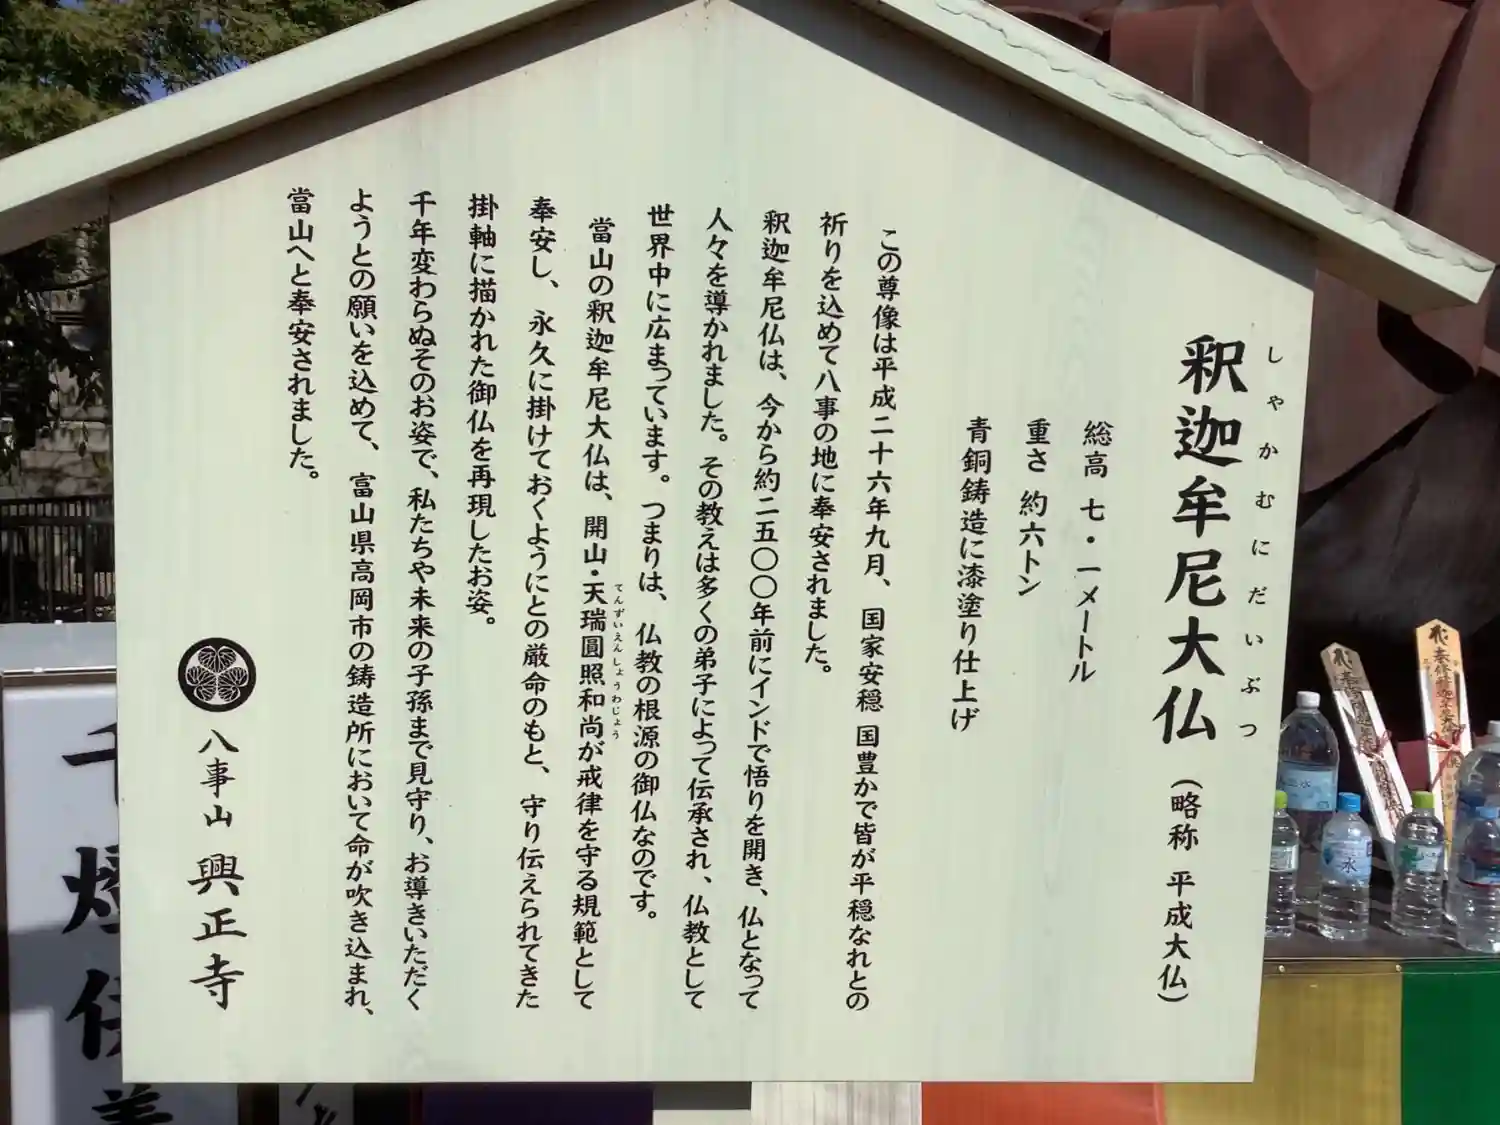 しゃかむにだいぶつ
釈迦牟尼大仏（略称 平成大仏）
総高 七・一メートル
重さ 約六トン
青銅鋳造に漆塗り仕上げ
この尊像は平成二十六年九月、国家安穏 国豊かで皆が平穏なれとの
祈りを込めて八事の地に奉安されました。
釈迦牟尼仏は、今から約二五〇〇年前にインドで悟りを開き、仏となって
人々を導かれました。その教えは多くの弟子によって伝承され、仏教として
世界中に広まっています。つまりは、仏教の根源の御仏なのです。
てんずいえんしょうわじょう
當山の釈迦牟尼大仏は、開山・天瑞圓照和尚が戒律を守る規範として
奉安し、永久に掛けておくようにとの厳命のもと、守り伝えられてきた
掛軸に描かれた御仏を再現したお姿。
千年変わらぬそのお姿で、私たちや未来の子孫まで見守り、お導きいただく
ようとの願いを込めて、富山県高岡市の鋳造所において命が吹き込まれ、
當山へと奉安されました。
八事山 興正寺
水